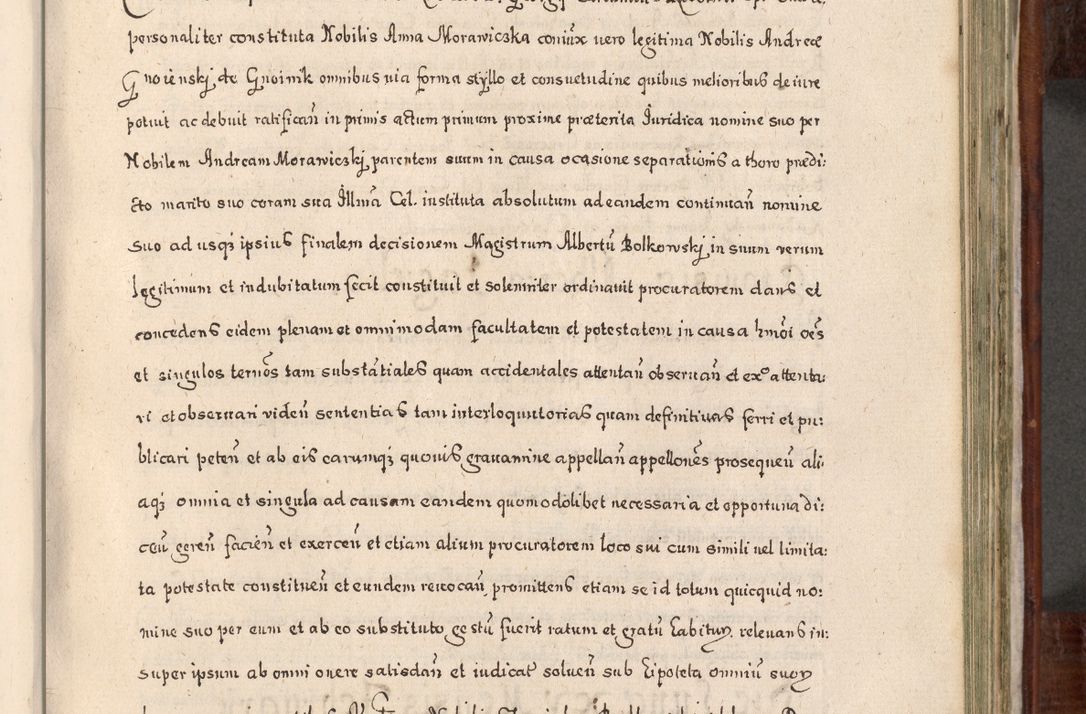 personaliter constituta Nobilis Anna Morawiczka coniux uero legitima Nobilis Andreæ
Gnoienskj de Gnoinik omnibus uia forma styllo et consuetudine quibus melioribus de iure
potuit ac debuit ratifican̄ in primis actum primum proxime præterita Juridica nomine suo per
Nobilem Andream Morawiczkj parentem suum in causa ocasione separationis a thoro prædi:
cto marito suo coram sua Illmā Cel. instituta absolutum ad eandem continuan̄ nomine
suo ad usq3 ipsius finalem decisionem Magistrum Albertū Bolkowskj in suum verum
legitimum et indubitatum fecit constituit et solemniter ordinauit procuratorem dans et
concedens eidem plenam et omnimodam facultatem et potestatem in causa hmōi oēs
et singulos termōs tam substātiales quam accidentales attentan̄ obseruan̄ et exº attenta:
ri et obseruari viden̄ sententias tam interloquutorias quam definitiuas ferri et pu:
blicari peten̄ et ab eis earumq3 quouis grauamine appellan̄ appellonēs prosequen̄ ali:
aq3 omnia et singula ad causam eandem quomodolibet necessaria et opportuna di:
cen̄ geren̄ facien̄ et exercen̄ et etiam alium procuratorem loco sui cum simili uel limita:
ta potestate constituen̄ et eundem reuocan̄, promittens etiam se id totum quicquid no:
mine suo per eum et ab eo substituto gestū fuerit ratum et gratū habitur. releuans in:
super ipsum ab omni onere satisdan̄ et iudicat soluen̄ sub hipoteta omniū suor